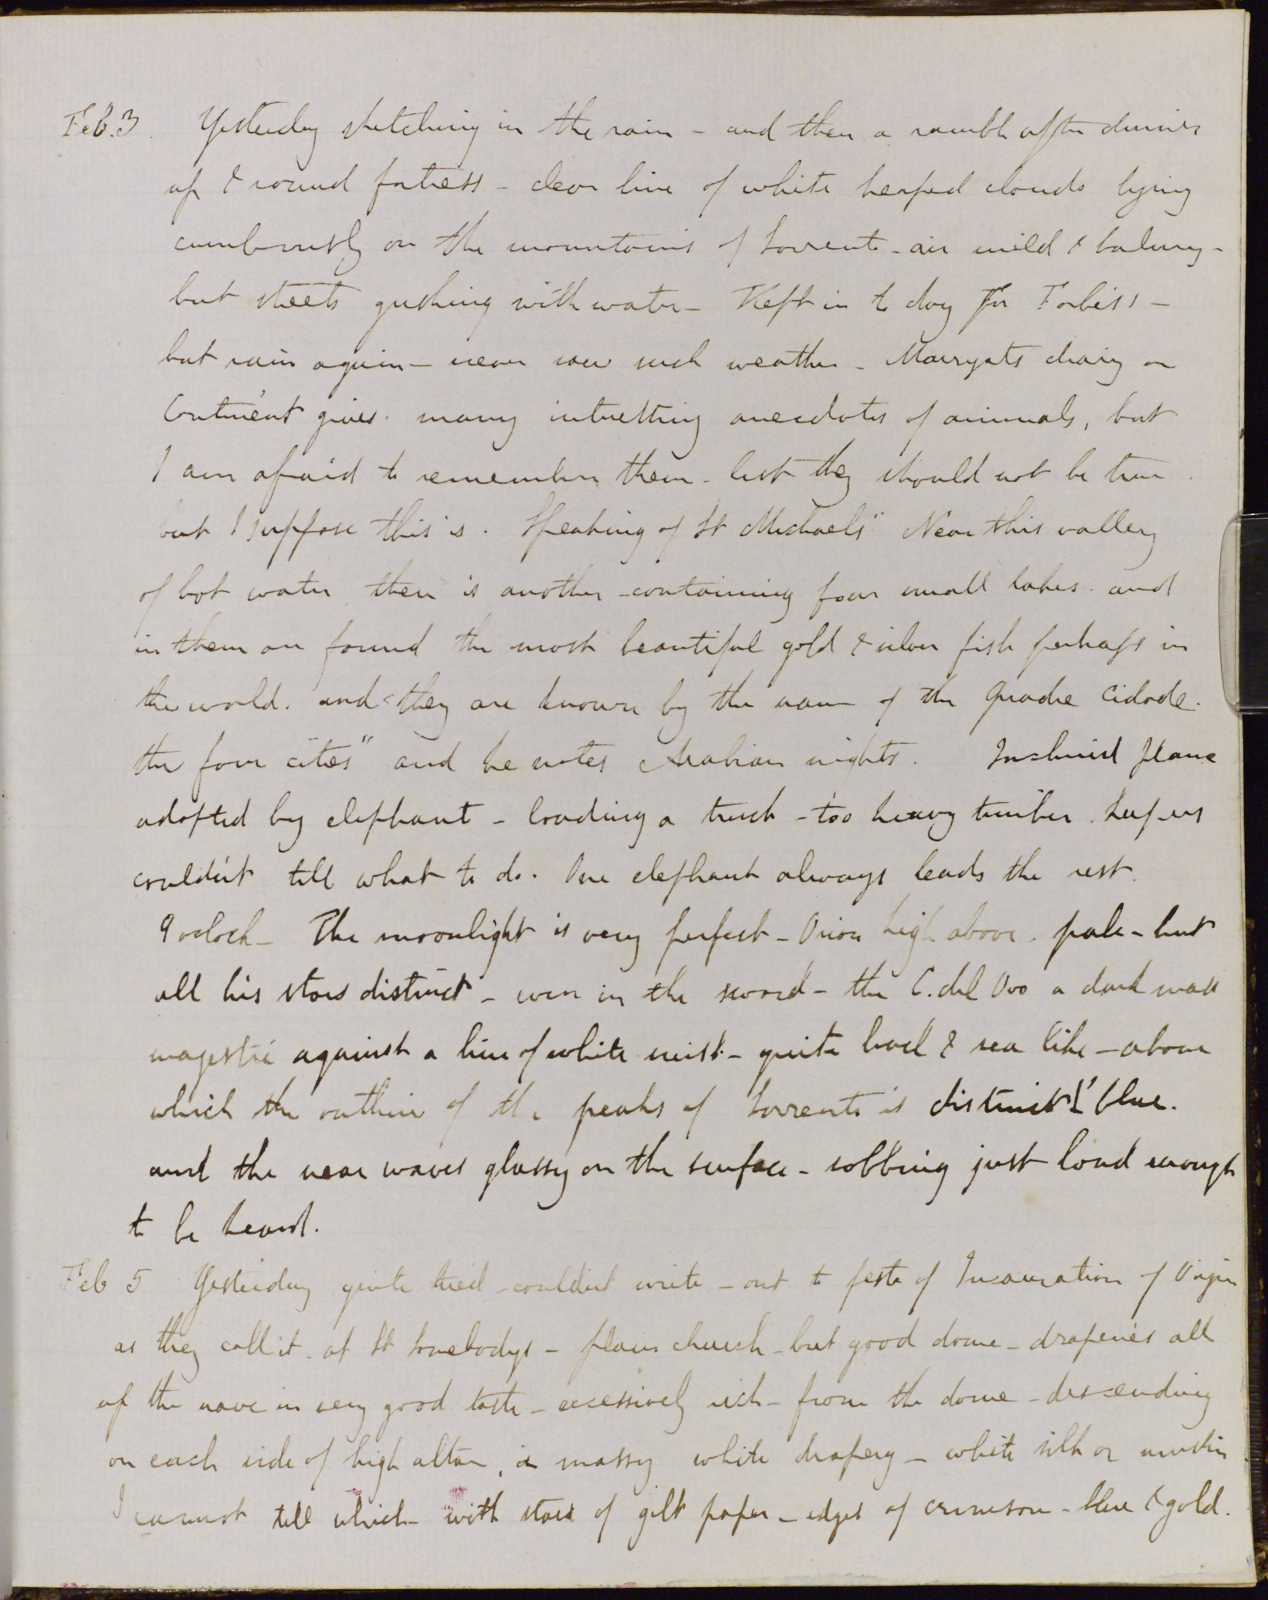 Feb. 3 Yesterday sketching in the rain – and then a ramble after dinner
up & round fortress – clear line of white heaped clouds lying
cumbrously on the mountains of Sorrento – air mild & balmy –
but streets gushing with water – Kept in to day for Forbess –
but rain again – never saw such weather – Marryats diary on
Continent gives many interesting anecdotes of animals, but
I am afraid to remember them – lest they should not be true.
but I suppose this is. Speaking of St Michaels" Near this valley
of hot water there is another – containing four small lakes and
in them are found the most beautiful gold & silver fish perhaps in
the world. and they are known by the name of the Quadre Cidade.
the four cities" and he notes Arabian nights. Inclined plane
adopted by elephant – loading a truck – too heavy timber. keepers
couldn't tell what to do. One elephant always leads the rest.
9 oclock – The moonlight is very perfect – Orion high above. pale – but
all his stars distinct – even in the sword – the C. del Ovo a dark mass
majestic against a line of white mist – quite level & sea like – above
which the outline of the peaks of Sorrento is distinct blue.
and the near waves glassy on the surface – sobbing just loud enough
to be heard.
Feb 5 Yesterday quite tired – couldnt write – out to festa of Incarnation of Virgin
as they call it at St Somebodys – plain church – but good dome – draperies all
up the nave in very good taste – excessively rich – from the dome – descending
on each side of high altar, a massy white drapery – white silk or muslin
I cannot tell which – with stars of gilt paper – edges of crimson – blue & gold.